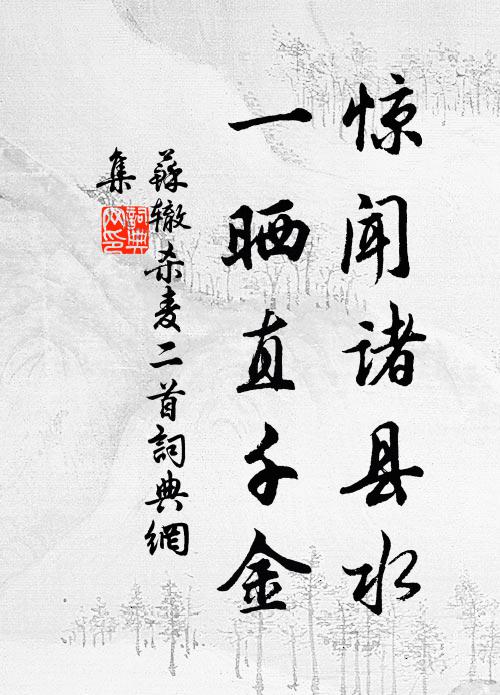 惊闻诸县水
一晒直千金
蘇辙杀麦二首詞典網
集
詞典網印